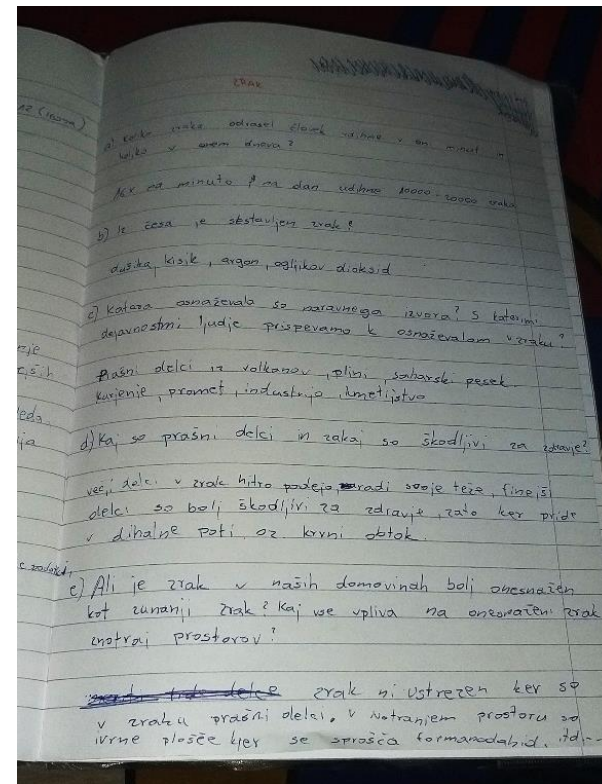 ZRAK
a) Koliko zraka odrasel človek vdihne v eni minuti in
koliko v enem dnevu?
16x na minuto na dan vdihne 10000-20000 zraka
b) Iz česa je sestavljen zrak?
dušika, kisik, argon, ogljikov dioksid
c) Katera osnaževala so naravnega izvora? S katerimi
dejavnostmi ljudje prispevamo k osnaževalom v zraku?
Prašni delci iz volkanov, plini, saharski pesek.
kurjenje, promet, industrija, kmetijstvo
d) Kaj so prašni delci in zakaj so škodljivi za zdravje?
večji delci v zrak hitro padejo, zaradi svoje teže, finejši
delci so bolj škodljivi za zdravje, zato ker pride
v dihalne poti oz krvni obtok.
e) Ali je zrak v naših domovinah bolj onesnažen
kot zunanji zrak? Kaj vse vpliva na onesnaženi zrak
znotraj prostorov?
zrak ni ustrezen ker so
v zraku prašni delci. v notranjem prostoru so
iverne plošče kjer se sprošča formanodahid. itd--